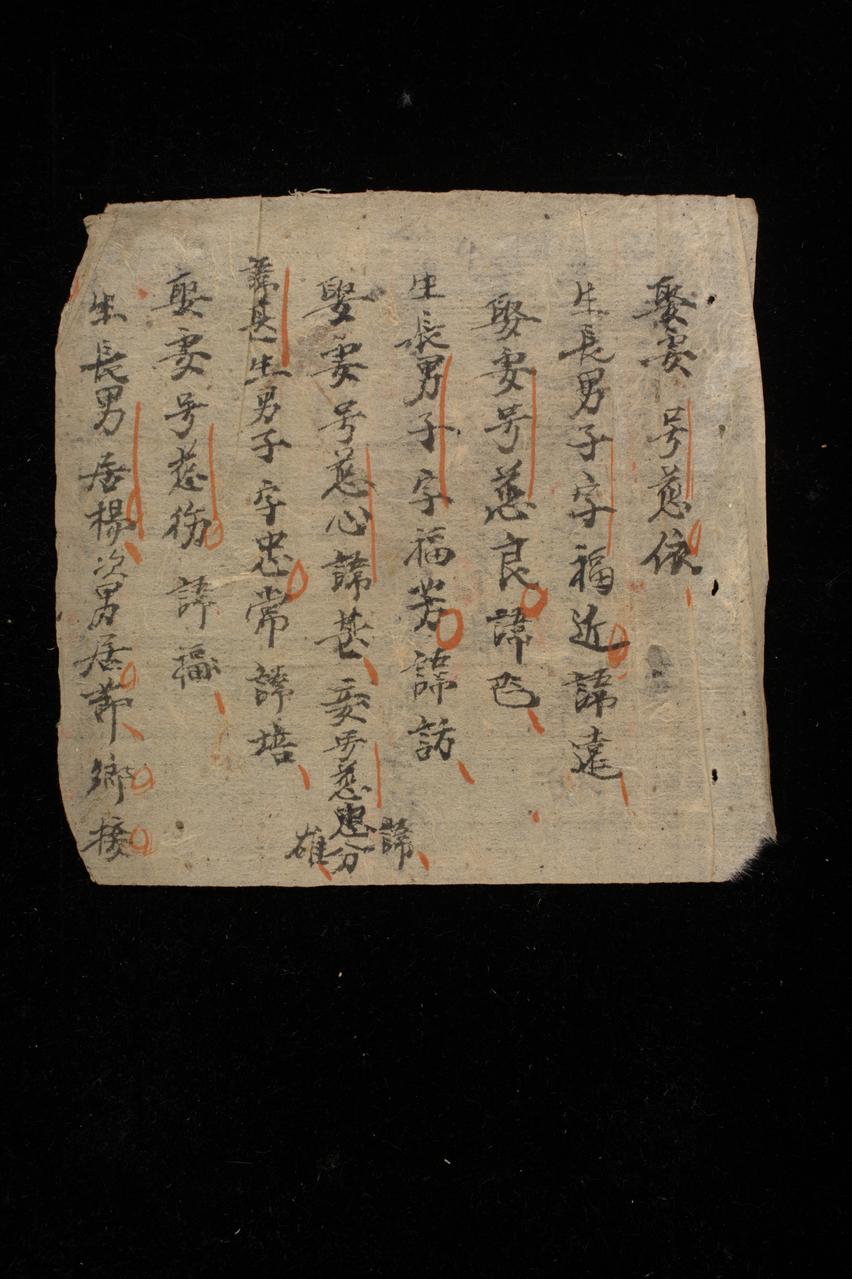 娶妾号慈依
生長男子字福近諱遠
娶妻号慈良諱
生長男子字福芳諱訪
娶妻号慈心諱甚妾号慈忠分諱雄
諱甚生男子字忠常諱培
娶妻号慈諱福
生長男居楊次男居節鄉